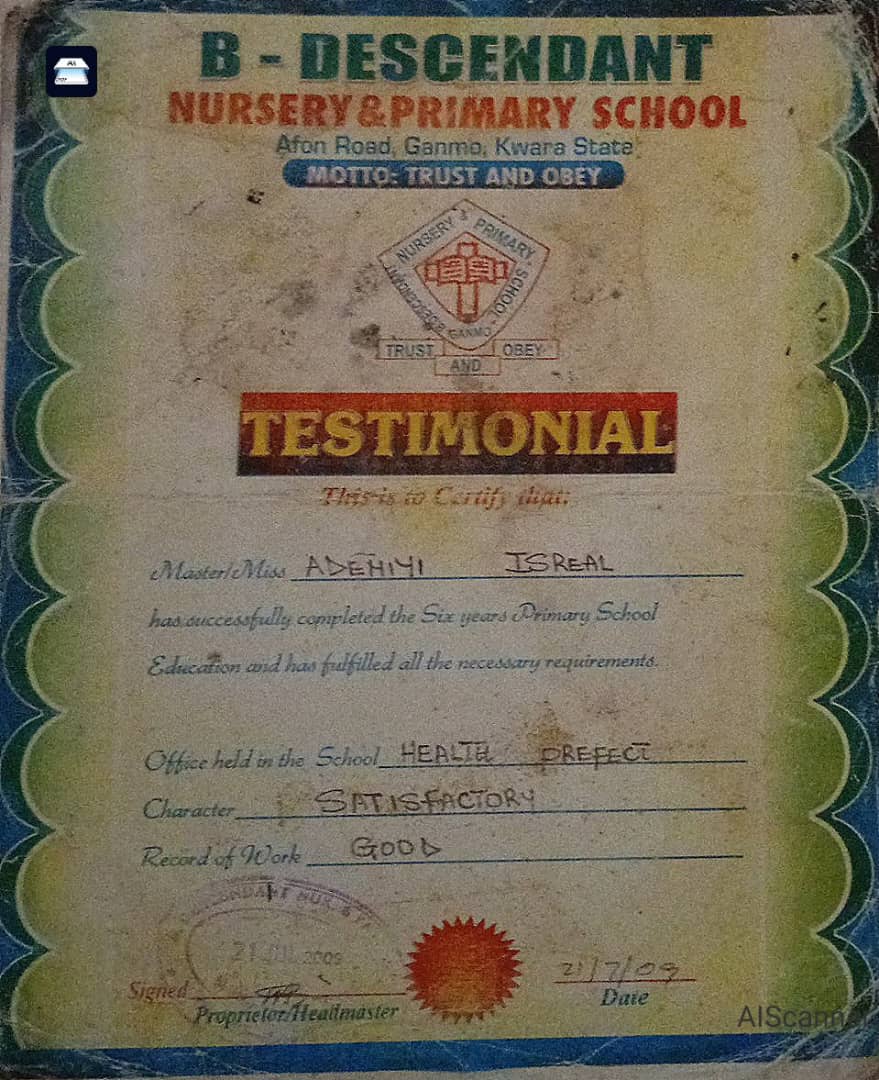 B - DESCENDANT
NURSERY & PRIMARY SCHOOL
Afon Road, Ganmo, Kwara State
MOTTO: TRUST AND OBEY
NURSERY & PRIMARY SCHOOL
B-DESCENDANT GANMO
TRUST AND OBEY
TESTIMONIAL
This is to Certify that:
Master/Miss ADENIYI ISREAL
has successfully completed the Six years Primary School
Education and has fulfilled all the necessary requirements.
Office held in the School HEALTH PREFECT
Character SATISFACTORY
Record of Work GOOD
DESCENDANT NUR. &
21 JUL 2009
21/7/09
Signed
Proprietor/Headmaster
Date
AIScann